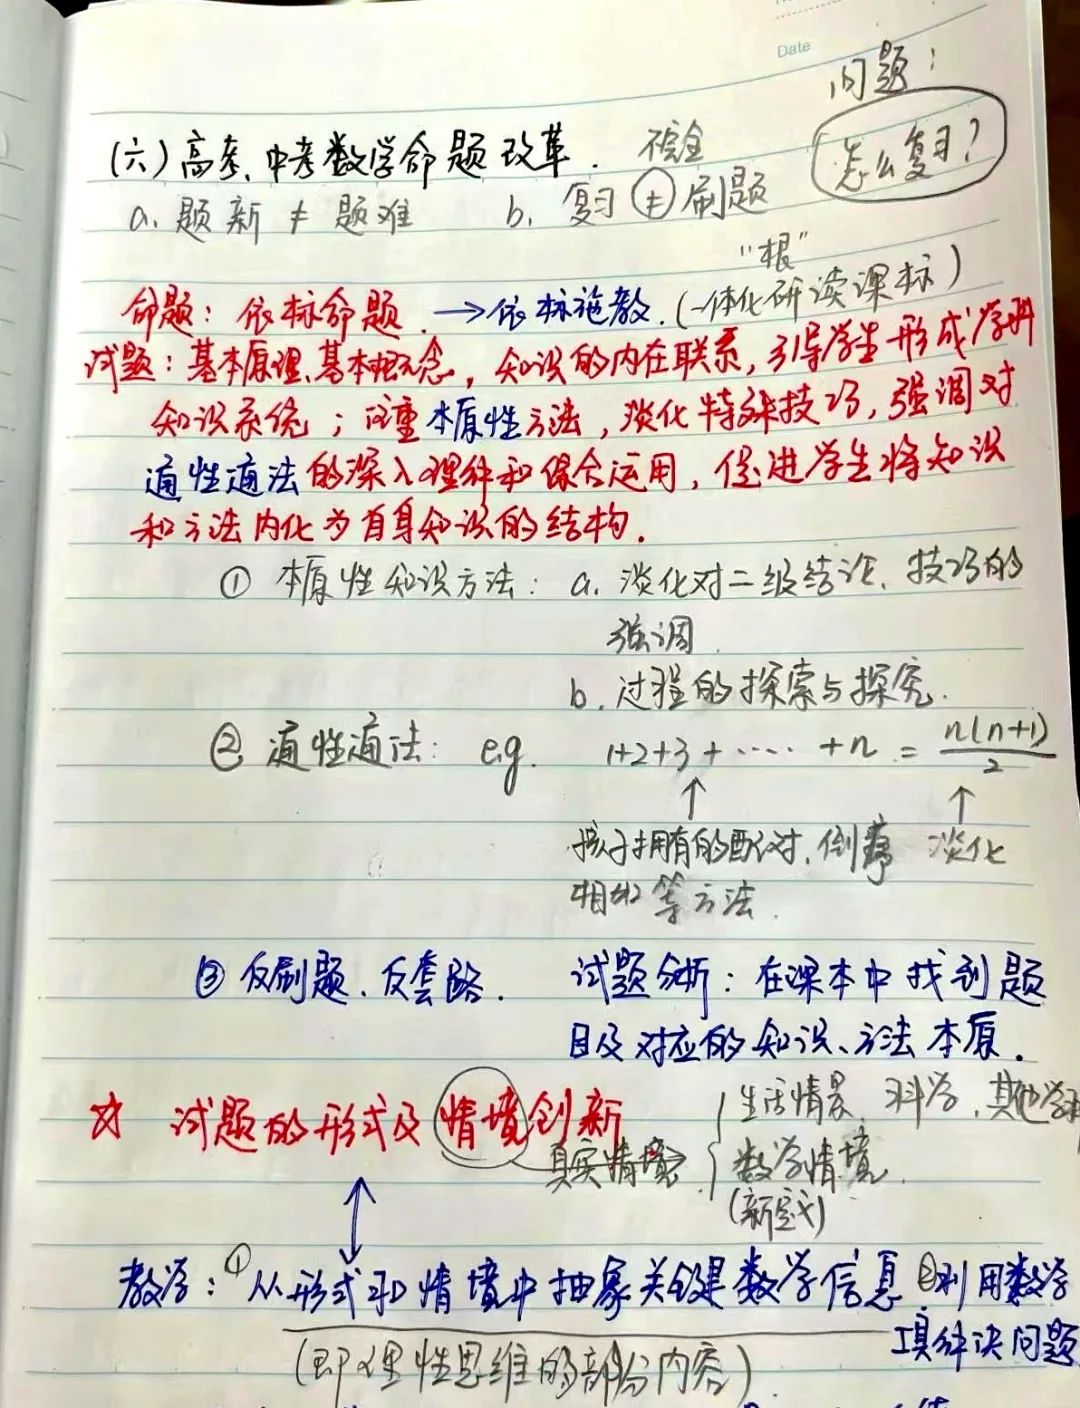 Date
问题：
（六）高考、中考数学命题改革． 不完全 怎么复习？
a. 题新 ≠ 题难 b. 复习 ≠ 刷题
"根"
命题：依标命题．→依标施教．（一体化研读课标）
试题：基本原理、基本概念，知识的内在联系，引导学生形成学科
知识系统；注重本原性方法，淡化特殊技巧，强调对
通性通法的深入理解和综合运用，促进学生将知识
和方法内化为自身知识的结构．
① 本原性知识方法：a. 淡化对二级结论、技巧的
强调．
b. 过程的探索与探究．
② 通性通法：e.g. 1+2+3+……+n = n(n+1)/2
↑ ↑
孩子拥有的配对、倒序 淡化
相加等方法．
③ 反刷题、反套路． 试题分析：在课本中找到题
目及对应的知识、方法本原．
☆ 试题的形式及情境创新 生活情景、科学、其他学科
真实情境 数学情境．
（新定义）
教学：①从形式和情境中抽象关键数学信息 ②利用数学
工具解决问题
（即理性思维的部分内容）